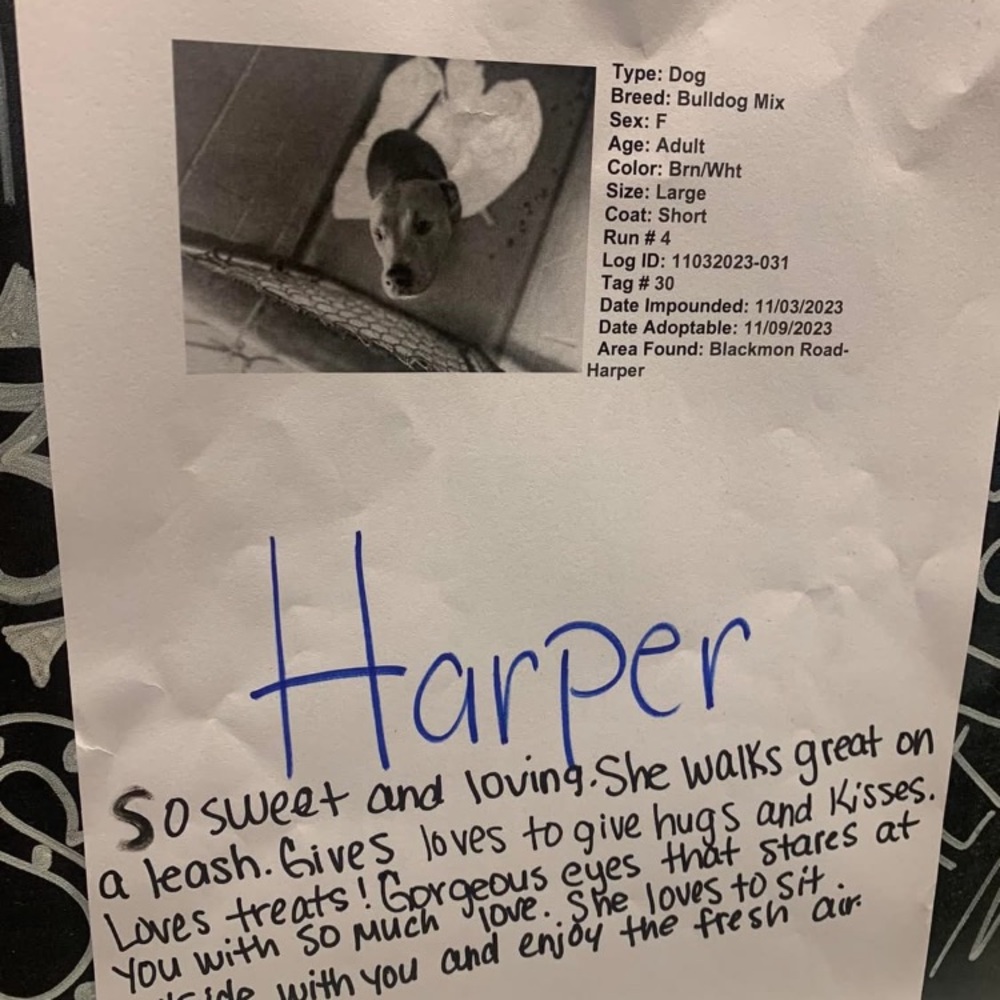 Type: Dog
Breed: Bulldog Mix
Sex: F
Age: Adult
Color: Brn/Wht
Size: Large
Coat: Short
Run # 4
Log ID: 11032023-031
Tag # 30
Date Impounded: 11/03/2023
Date Adoptable: 11/09/2023
Area Found: Blackmon Road-
Harper
Harper
So sweet and loving. She walks great on
a leash. Gives loves to give hugs and kisses.
Loves treats! Gorgeous eyes that stares at
you with so much love. She loves to sit
with you and enjoy the fresh air.